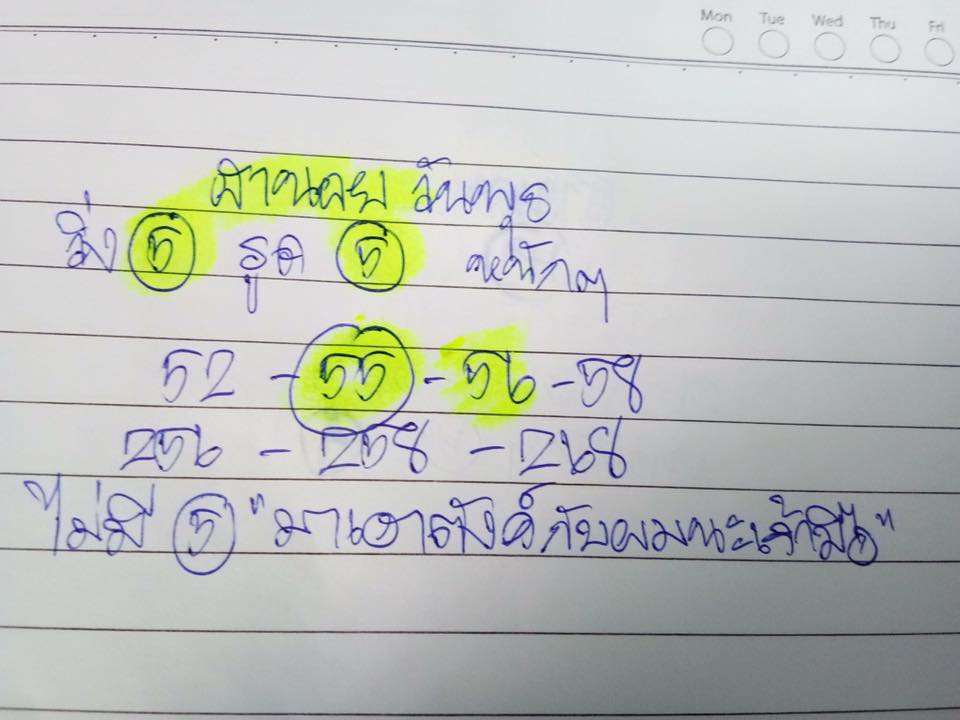 Mon Tue Wed Thu Fri
ฮานอย วันพุธ
วิ่ง 5 รูด 5 หนักๆ
52 - 55 - 56 - 58
256 - 258 - 268
"ไม่มี 5 "มาเอาตังค์กับผมนะเจ้ามือ"